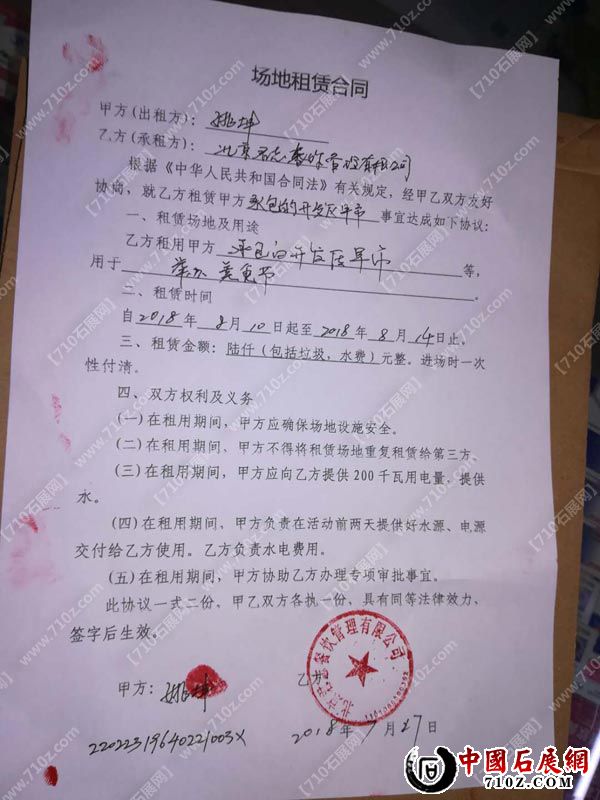 场地租赁合同
甲方(出租方): 姚坤
乙方(承租方): 北京 餐饮管理有限公司
根据《中华人民共和国合同法》有关规定，经甲乙双方友好
协商，就乙方租赁甲方 承包的开发区早市 事宜达成如下协议:
一、租赁场地及用途
乙方租用甲方 承包的开发区早市 等，
用于 举办美食节 。
二、租赁时间
自2018年8月10日起至2018年8月14日止。
三、租赁金额: 陆仟(包括垃圾,水费)元整。进场时一次
性付清。
四、双方权利及义务
(一)在租用期间，甲方应确保场地设施安全。
(二)在租用期间、甲方不得将租赁场地重复租赁给第三方、
(三)在租用期间，甲方应向乙方提供200千瓦用电量，提供
水。
(四)在租用期间、甲方负责在活动前两天提供好水源、电源
交付给乙方使用。乙方负责水电费用。
(五)在租用期间，甲方协助乙方办理专项审批事宜。
此协议一式二份、甲乙双方各执一份、具有同等法律效力、
签字后生效。
甲方: 姚坤
乙方
餐饮管理有限公司
22022319640221003X
2018年7月27日
中國石展網
710Z.COM
【710石展网】
www.710z.com